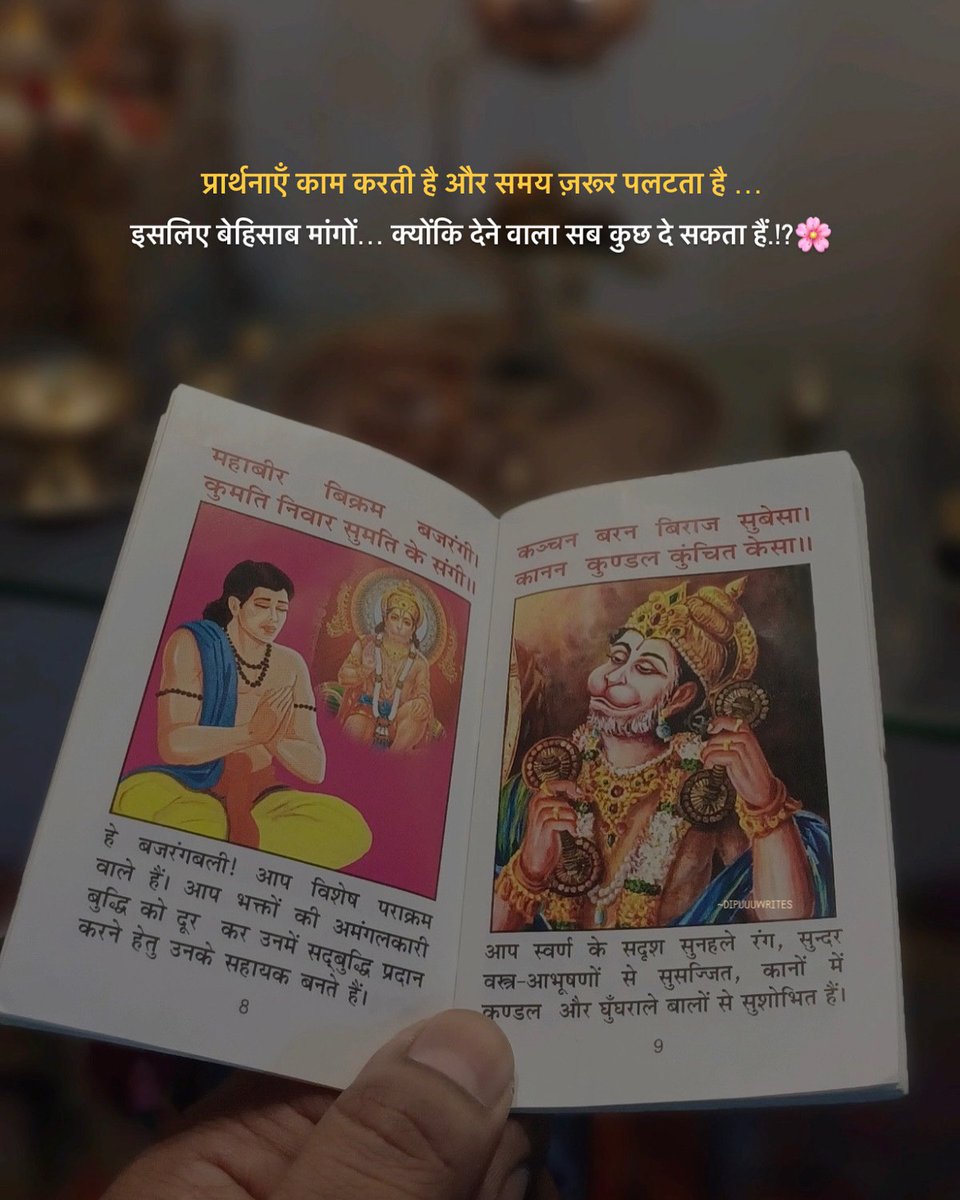 प्रार्थनाएँ काम करती है और समय ज़रूर पलटता है ...
इसलिए बेहिसाब मांगों... क्योंकि देने वाला सब कुछ दे सकता हैं.!?🌸
महाबीर बिक्रम बजरंगी।
कुमति निवार सुमति के संगी॥
हे बजरंगबली! आप विशेष पराक्रम
वाले हैं। आप भक्तों की अमंगलकारी
बुद्धि को दूर कर उनमें सद्‌बुद्धि प्रदान
करने हेतु उनके सहायक बनते हैं।
8
कञ्चन बरन बिराज सुबेसा।
कानन कुण्डल कुंचित केसा॥
~DIPUUUWRITES
आप स्वर्ण के सदृश सुनहले रंग, सुन्दर
वस्त्र-आभूषणों से सुसज्जित, कानों में
कुण्डल और घुँघराले बालों से सुशोभित हैं।
9